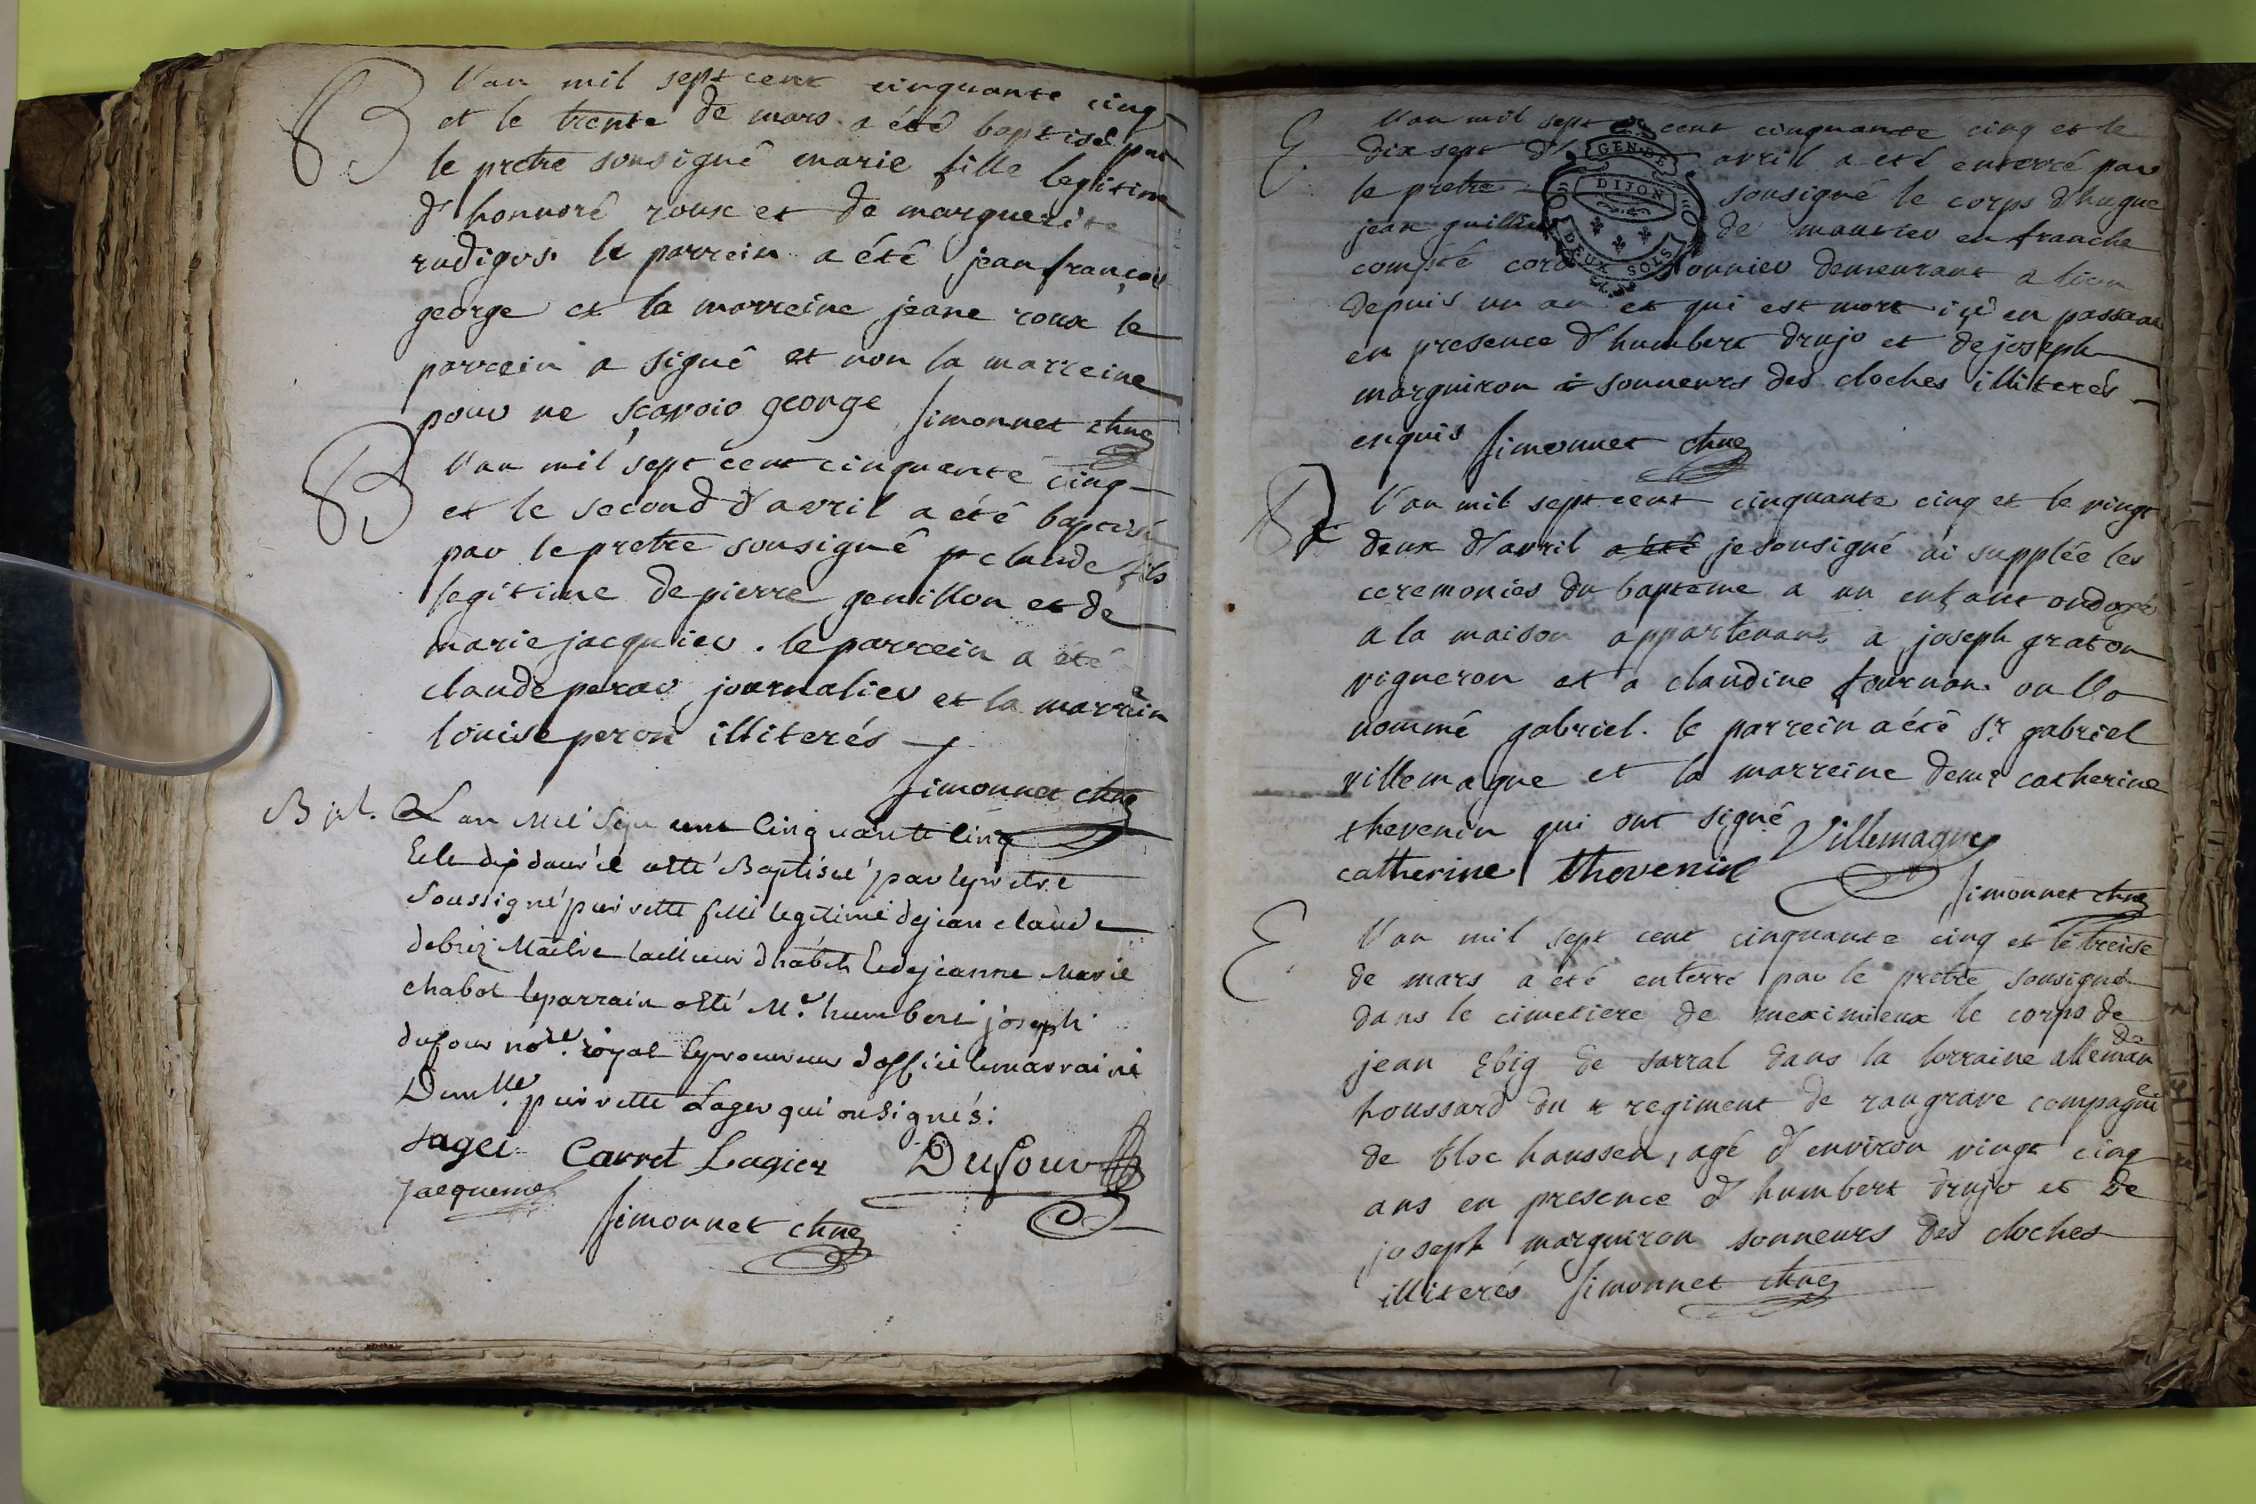 B
l'an mil sept cent cinquante cinq
et le trente de mars a été baptisé par
le pretre sousigné marie fille legitime
d'honnoré roux et de marguerite
rudigos. le parrein a été jean françois
george et la marreine jeane roux le
parrein a signé et non la marreine
pour ne sçavoir george Simonnet chne
B
l'an mil sept cent cinquante cinq
et le second d'avril a été baptisé
par le pretre sousigné p claude fils
legitime de pierre genillon et de
marie jacquier. le parrein a été
claude perar journalier et la marreine
louise peron illiterés
Simonnet chne
Bpt. L'an Mil Sept cent Cinquante Cinq
Et le dix d'avril a été Baptiséé par le prêtre
Soussigné pierrette fille legitime de jean claude
debriz Maitre tailleur d'habits Et de jeanne Marie
chabot le parrain a Eté Me. humbert joseph
dufour nore. royal Et procureur d'office la marraine
Demlle. pierrette Lager qui on Signés:
Lager Carret Lagier Dufour
Jacquemet
Simonnet chne
E.
l'an mil sept cent cinquante cinq et le
dix sept d' avril a été enterré par
le pretre sousigné le corps d'hugue
jean guillin de maurier en franche
compté cordonnier demeurant a lion
depuis un an et qui est mort içi en passant
en presence d'humbert drujo et de joseph
marguiron sonneurs des cloches illiterés
enquis Simonnet chne
B
l'an mil sept cent cinquante cinq et le vingt
deux d'avril a été je sousigné ai supplée les
ceremonies du bapteme a un enfant ondoyé
a la maison appartenant a joseph graton
vigneron et a claudine fournon on l'a
nommé gabriel. le parrein a été Sr. gabriel
villemagne et la marreine demle catherine
thevenin qui ont signé Villemagne
catherine thevenin
Simonnet chne
E.
l'an mil sept cent cinquante cinq et le treise
de mars a été enterré par le pretre sousigné
dans le cimetiere de meximieux le corps de
jean Ebig de sarral dans la lorraine allemande
houssard du regiment de raugrave compagnie
de bloc haussen, agé d'environ vingt cinq
ans en presence d'humbert drujo et de
joseph marguiron sonneurs des cloches
illiterés Simonnet chne
GEN. DE
DIJON
DEUX SOLS